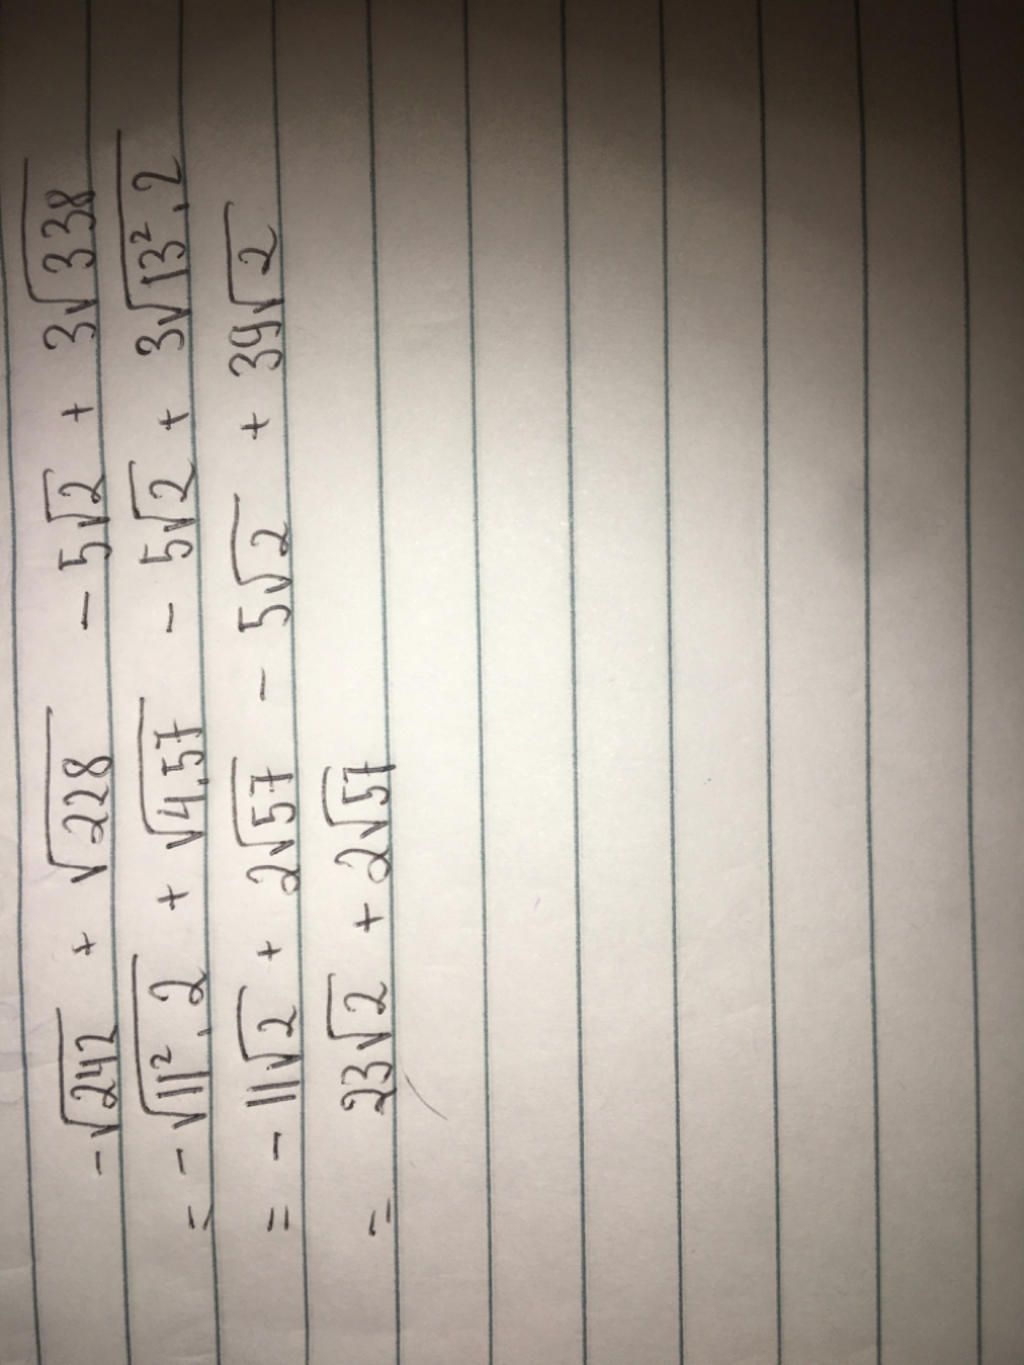 -√242 + √228 - 5√2 + 3√338
= -√11².2 + √4.57 - 5√2 + 3√13².2
= -11√2 + 2√57 - 5√2 + 39√2
= 23√2 + 2√57